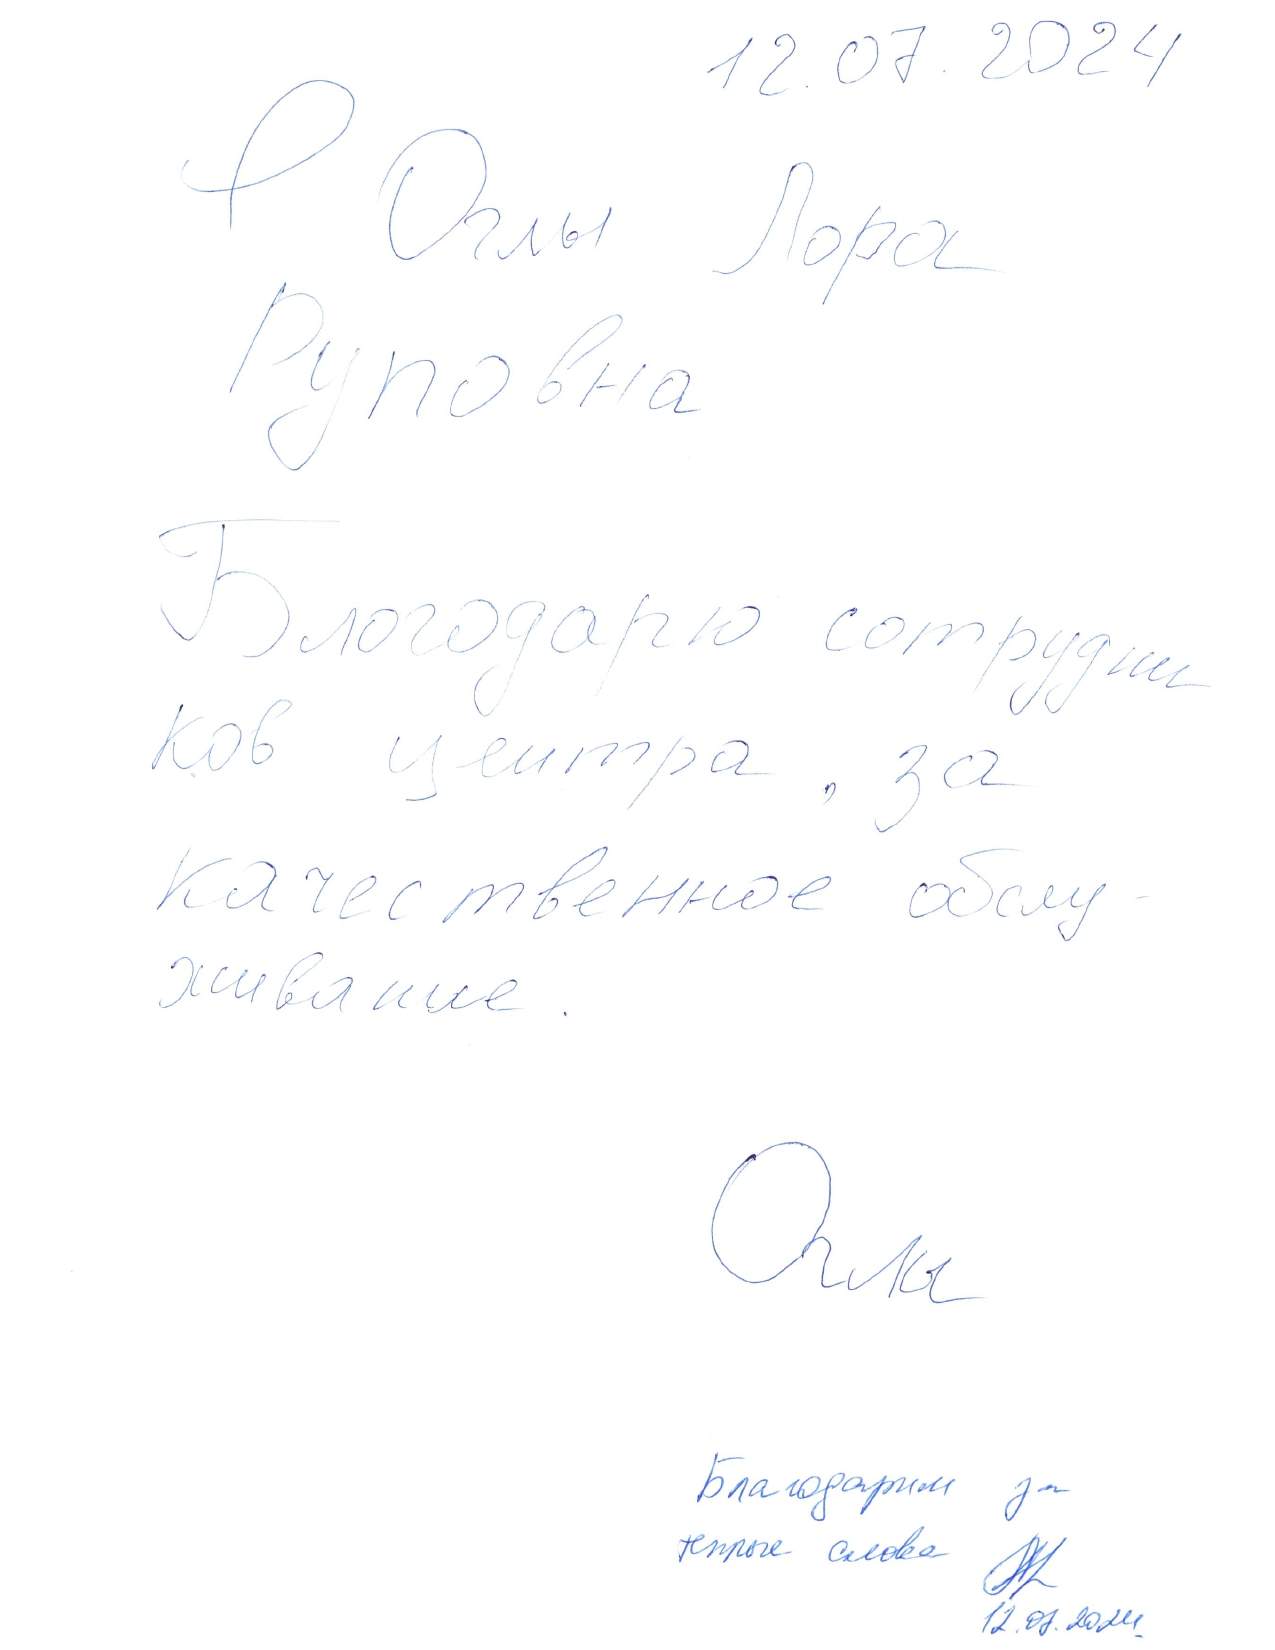 12.07.2024
Я Оглы Лора
Руповна
Благодарю сотрудни
ков центра, за
качественное обслу-
живание.
Оглы
Благодарим за
теплые слова
12.07.2024